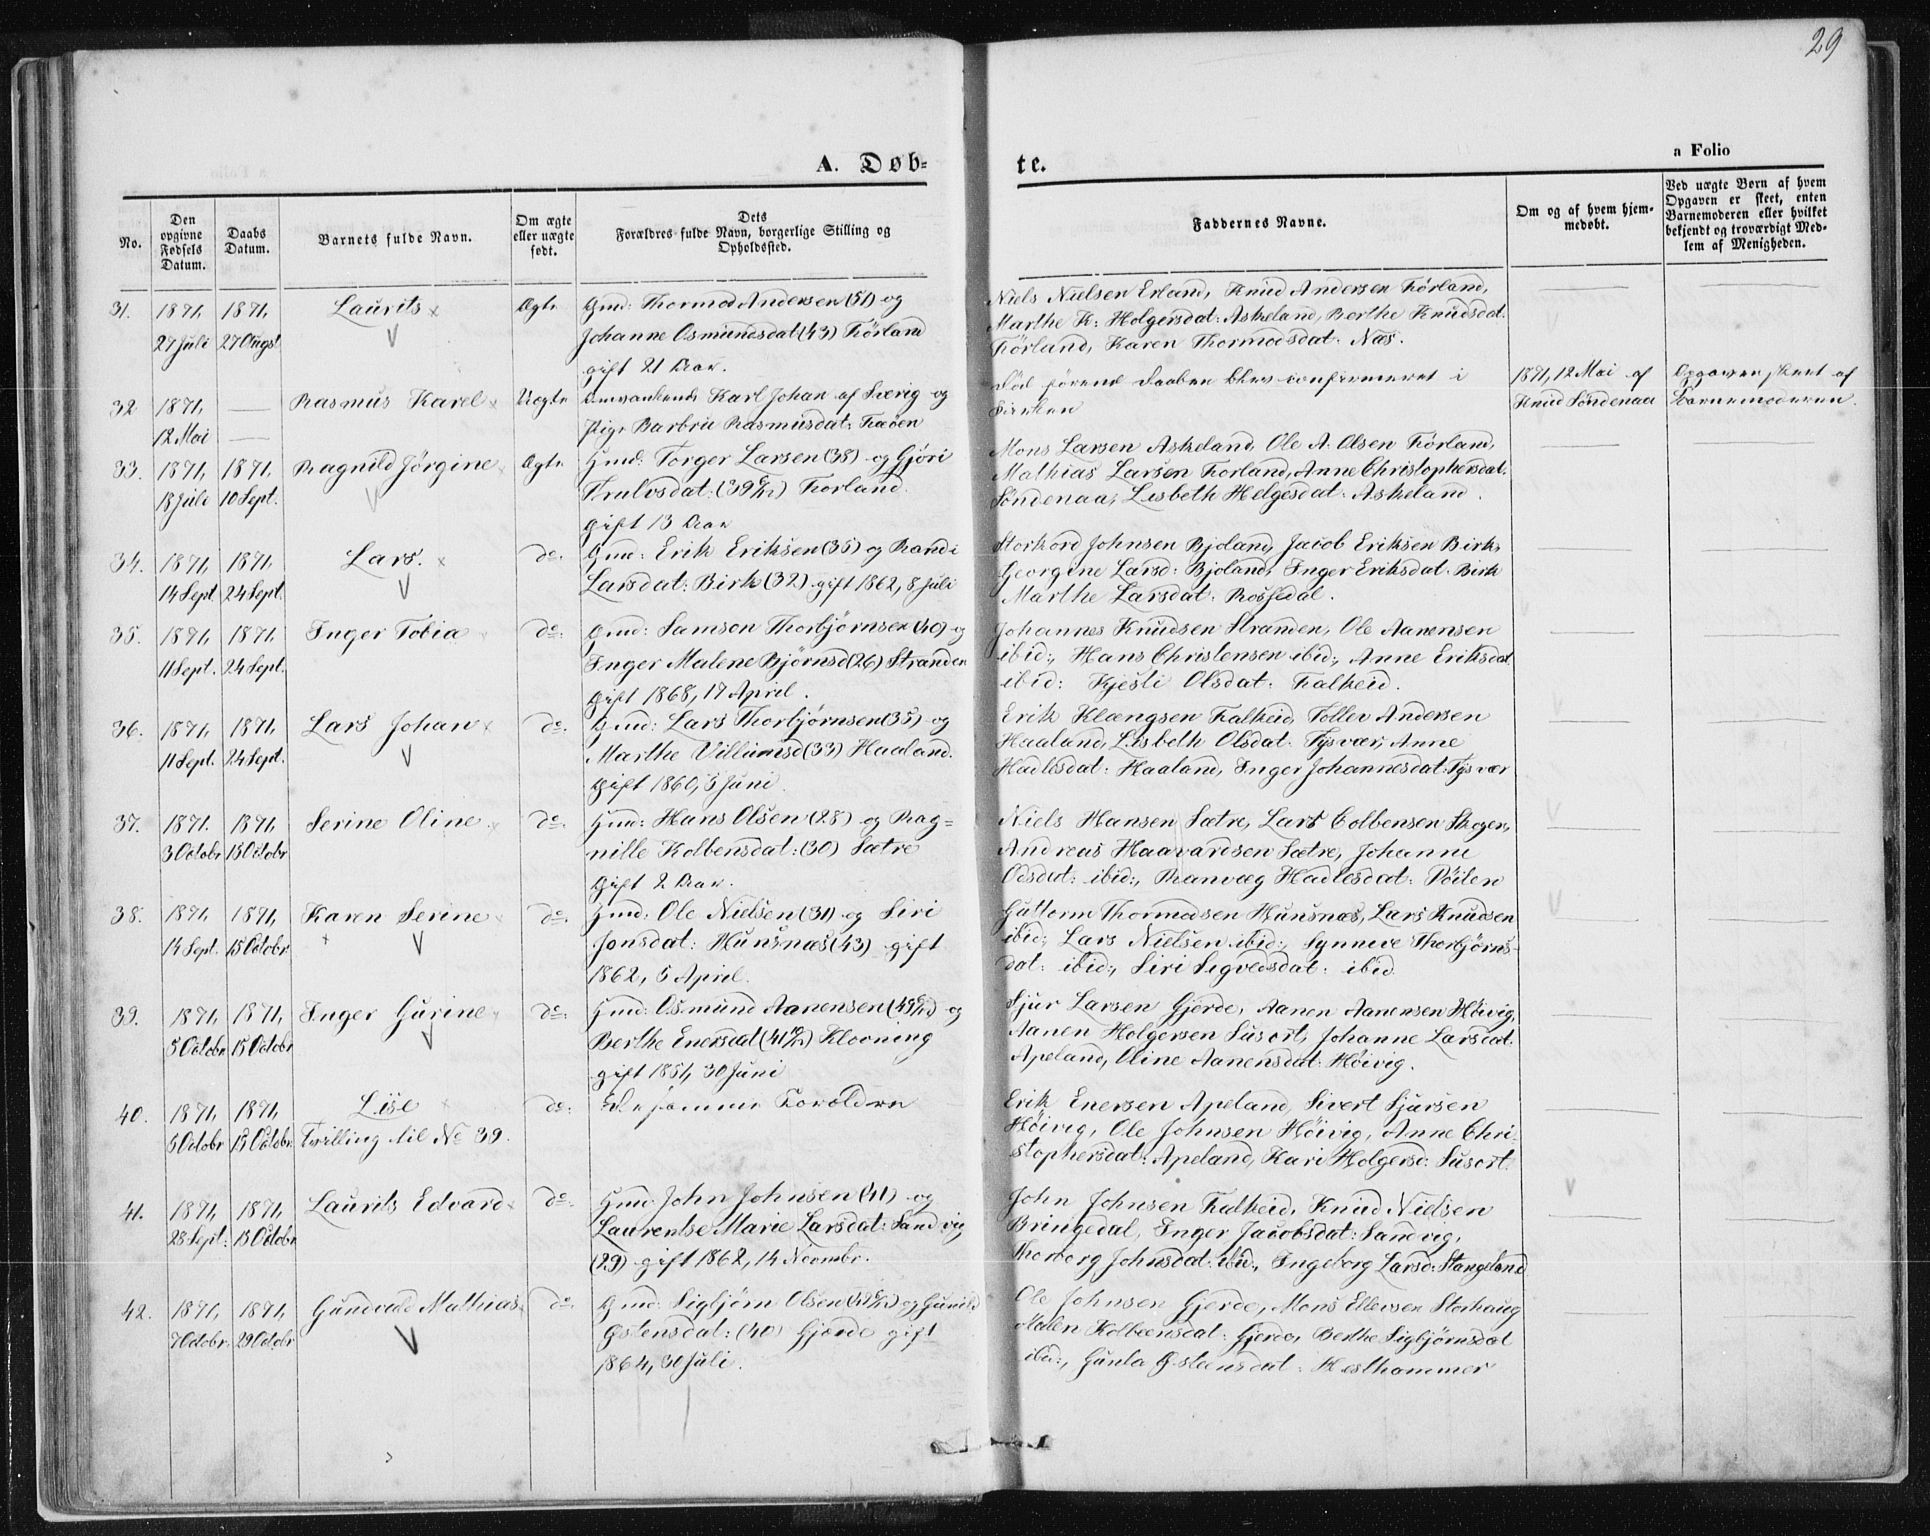 29
A. Døb-
te.
a Folio
No.
Den opgivne Fødsels Datum.
Daabs Datum.
Barnets fulde Navn.
Om ægte eller uægte født.
Dets Forældres fulde Navn, borgerlige Stilling og Opholdssted.
Faddernes Navne.
Om og af hvem hjemmedøbt.
Ved uægte Børn af hvem Opgaven er skeet, enten Barnemoderen eller hvilket bekjendt og troværdigt Medlem af Menigheden.
31. 1871, 1871, Laurits Ægte Gmd: Thormod Andersen (51) og
27 Juli 27 Augst Johanne Osmundsdat (43) Førland
gift 21 Aar.
Niels Nielsen Erland, Knud Andersen Førland,
Marthe K: Holgersdat: Askeland, Berthe Knudsdat:
Førland, Karen Thormodsdat: Næs.
32 1871, Rasmus Karel Uægte Karl Johan af Sverig og
12 Mai Pige Barbru Rasmusdat:
Død førend Daaben blev confirmeret i
Kirken
1871, 12 Mai af
Knud Søndenaa
Opgaven skeet af
Barnemoderen.
33. 1871, 1871, Ragnild Jørgine Ægte Gmd: Torger Larsen (38) og Gjøri
18 Juli 10 Sept. Trulsdat: (39 Førland.
gift 13 Aar
Mons Larsen Askeland, Ole A. Olsen Førland,
Mathias Larsen Førland, Anne Christophersdat.
Søndenaa, Lisbeth Helgesdat: Askeland.
34. 1871, 1871, Lars. do. Gmd: Erik Eriksen (35) og Randi
14 Sept 24 Sept. Larsdat: Birk (32) gift 1862, 8 Juli
Storkord Johnsen Bjoland, Jacob Eriksen Birk,
Georgine Larsd: Bjoland, Inger Eriksdat. Birk
Marthe Larsdat: Rossedal.
35. 1871, 1871, Inger Tobia do: Gmd: Samson Thorbjørnsen (40) og
11 Sept. 24 Sept. Inger Malene Bjørnsd (26) Stranden
gift 1868, 17 April.
Johannes Knudsen Stranden, Ole Aanensen
ibid:, Hans Christensen ibid:, Anne Eriksdat
ibid: Kjesti Olsdat: Falkeid.
36. 1871, 1871, Lars Johan do. Gmd: Lars Thorbjørnsen (35) og
11 Sept. 24 Sept. Marthe Villumsd (33) Haaland.
gift 1860, 5 Juni
Erik Klængsen Falkeid, Tollev Andersen
Haaland, Lisbeth Olsdat: Tysvær, Anne
Hadlesdat: Haaland, Inger Johannesdat: Tysvær
37. 1871. 1871, Serine Oline do. Gmd: Hans Olsen (28) og Rag=
3 Octobr 15 Octobr nille Kolbensdat: (30) Sætre
gift 2 Aar.
Niels Hansen Sætre, Lars Colbensen Skogen,
Andreas Haavardsen Sætre, Johanne
Odsdat: ibid:, Ranvæg Hadlesdat: Døilen
38. 1871, 1871, Karen Serine do. Gmd: Ole Nielsen (31) og Siri
14 Sept. 15 Octobr Jonsdat: Hunsnæs (43) gift
1862, 5 April.
Guttorm Thormodsen Hunsnæs, Lars Knudsen
ibid:, Lars Nielsen ibid:, Synneve Thorbjørns-
dat: ibid:, Siri Sigvedsdat: ibid
39. 1871, 1871, Inger Gurine do: Gmd: Osmund Aanensen (49 og
5 Octobr 15 Octobr Berthe Enersdat (41 Klovning
gift 1851, 30 Juni
Sjur Larsen Gjerde, Aanen Aanensen Høivig,
Aanen Holgersen Susort, Johanne Larsdat.
Apeland, Oline Aanensdat: Høivig.
40. 1871, 1871, Lise do: De samme Forældre
5 Octobr 15 Octobr. Tvilling til No 39.
Erik Enersen Apeland, Sivert Sjursen
Høivig, Ole Johnsen Høivig, Anne Chri-
stophersdat: Apeland, Kari Holgersd: Susort.
41. 1871, 1871, Laurits Edvard do. Gmd: John Johnsen (41) og
23 Sept: 15 Octobr Laurentse Marie Larsdat: Sandvig
(29) gift 1862, 14 Novmbr.
John Johnsen Falkeid, Knud Nielsen
Bringedal, Inger Jacobsdat: Sandvig,
Thorborg Johnsdat: ibid:, Ingeborg Larsd: Stangeland
42. 1871, 1871, Gundvald Mathias do. Gmd: Sigbjørn Olsen og Gunild
7 Octobr. 29 Octobr Østensdat: (40) Gjerde gift
1864, 30 Juli.
Ole Johnsen Gjerde, Mons Ellevsen Storhaug
Malen Kolbeensdat: Gjerde, Berthe Sigbjørnsdat
ibid:, Gunla Østensdat: Hesthammer